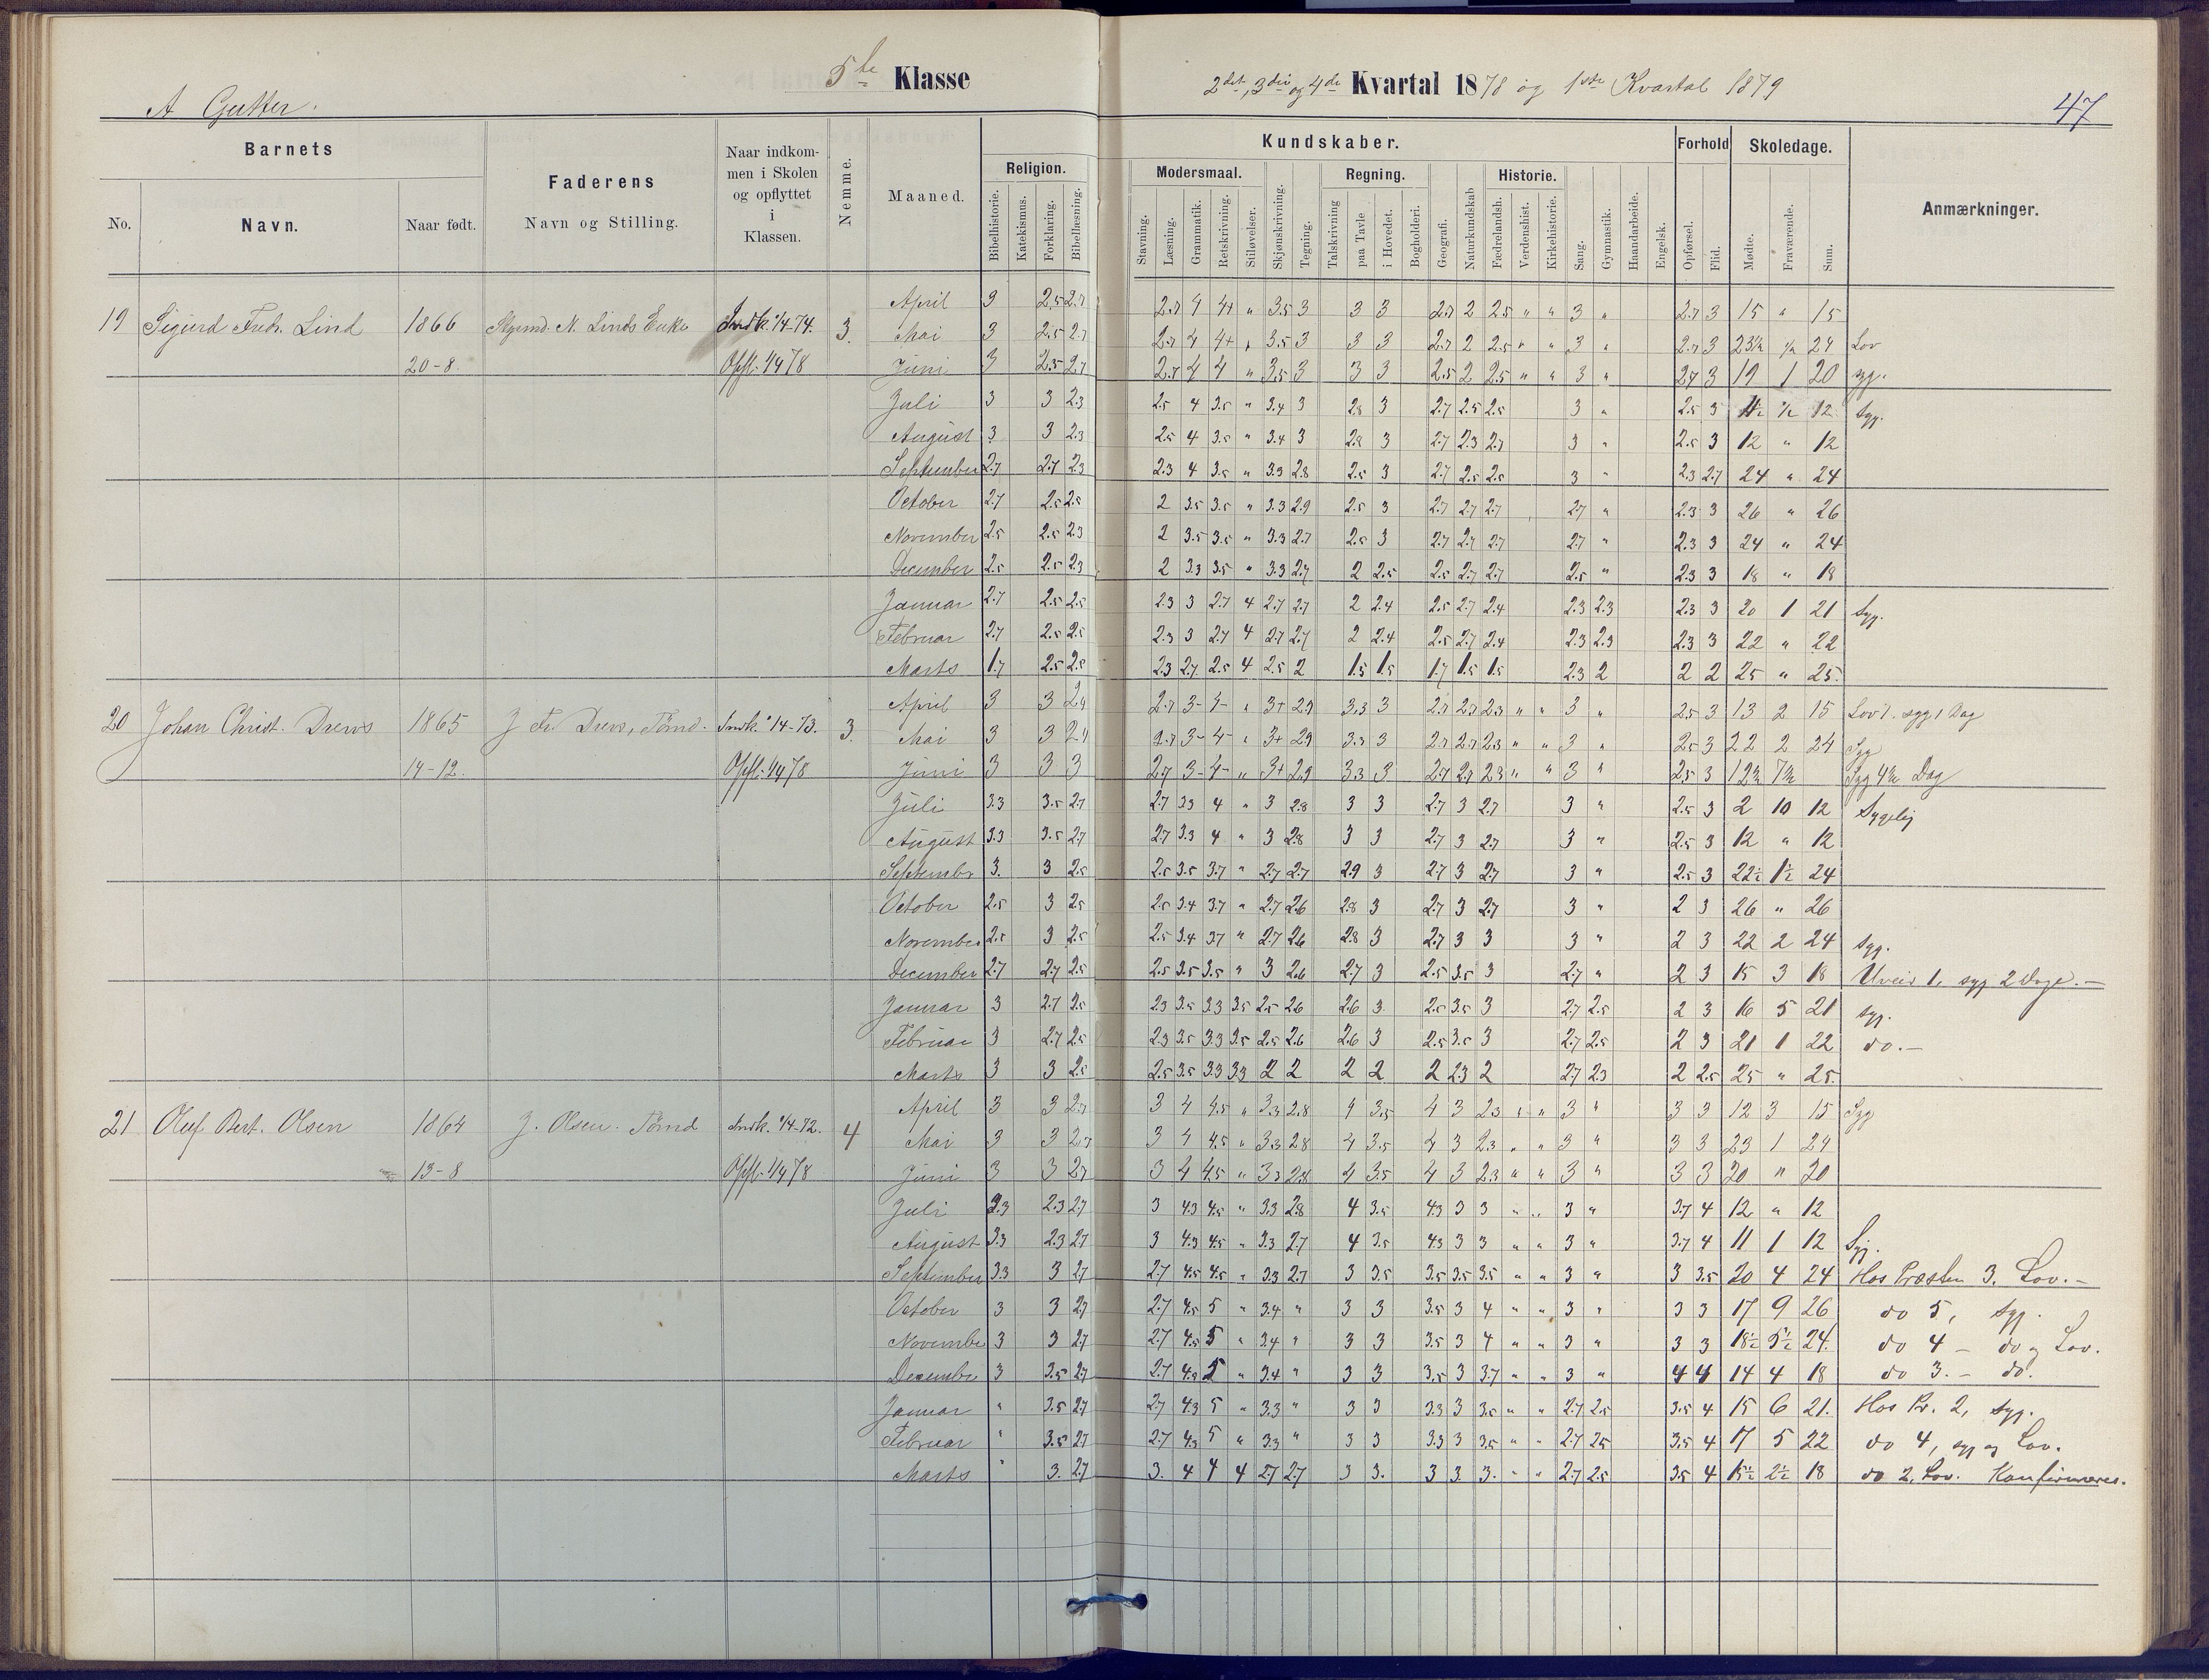 A Gutter.
5te Klasse
2det, 3die og 4de Kvartal 1878 og 1ste Kvartal 1879
47
Barnets
No.
Navn.
Naar født.
Faderens
Navn og Stilling.
Naar indkom-
men i Skolen
og opflyttet
i
Klassen.
Nemme.
Maaned.
Kundskaber.
Religion.
Bibelhistorie.
Katekismus.
Forklaring.
Bibellæsning.
Modersmaal.
Stavning.
Læsning.
Grammatik.
Retskrivning.
Stiløvelser.
Skjønskrivning.
Tegning.
Regning.
Talskrivning
paa Tavle
i Hovedet.
Bogholderi.
Geografi.
Naturkundskab
Historie.
Fædrelandsh.
Verdenshist.
Kirkehistorie.
Sang.
Gymnastik.
Haandarbeide.
Engelsk.
Forhold
Opførsel.
Flid.
Skoledage.
Mødte.
Fraværende.
Sum.
Anmærkninger.
19 Sigurd Fredr. Lind 1866 N. Linds Enke Indk. 1/4-74. 3.
20-8. Opfl. 1/4 78
April 3 2.5 2.7 2.7 4 4+ " 3.5 3 3 3 2.7 2 2.5 " " 3 " 2.7 3 15 " 15
Mai 3 2.5 2.7 2.7 4 4+ " 3.5 3 3 3 2.7 2 2.5 " " 3 " 2.7 3 23½ ½ 24 Lov
Juni 3 2.5 2.7 2.7 4 4 " 3.5 3 3 3 2.5 2 2.5 " " 3 " 2.7 3 19 1 20 syg.
Juli 3 3 2.3 2.5 4 3.5 " 3.4 3 2.8 3 2.7 2.5 2.5 3 " 2.5 3 11½ ½ 12 syg.
August 3 3 2.3 2.5 4 3.5 " 3.4 3 2.8 3 2.7 2.3 2.7 3 " 2.5 3 12 " 12
September 2.7 2.7 2.3 2.3 4 3.5 " 3.3 2.8 2.5 3 2.7 2.5 2.5 3 " 2.3 2.7 24 " 24
October 2.7 2.5 2.5 2 3.5 3.5 " 3.3 2.9 2.5 3 2.7 2.7 2.7 2.7 " 2.3 3 26 " 26
November 2.5 2.5 2.3 2 3.5 3.5 " 3.3 2.7 2.5 3 2.7 2.7 2.7 2.7 " 2.3 3 24 " 24
December 2.5 2.5 2.3 2 3.3 3.5 " 3.3 2.7 2 2.5 2.5 2.7 2.7 2.5 " 2.3 3 18 " 18
Januar 2.7 2.5 2.5 2.3 3 2.7 4 2.7 2.7 2 2.4 2.5 2.7 2.4 2.3 2.3 2.3 3 20 1 21 syg.
Februar 2.7 2.5 2.5 2.3 3 2.7 4 2.7 2.7 2 2.4 2.5 2.7 2.4 2.3 2.3 2.3 3 22 " 22
Marts 1.7 2.5 2.5 2.3 2.7 2.5 4 2.5 2 1.5 1.5 1.7 1.5 1.5 2.3 2 2 2 25 " 25.
20 Johan Christ. Drews 1865 J Fr. Drews, Tømd. Indk. 1/4-73. 3.
14-12. Opfl. 1/4 78
April 3 3 2.4 2.7 3- 4- " 3+ 2.9 3.3 3 2.7 2.7 2.3 " " 3 " 2.5 3 13 2 15 Lov 1. syg 1 Dag
Mai 3 3 2.7 2.7 3- 4- " 3+ 2.9 3.3 3 2.7 2.7 2.3 " " 3 " 2.5 3 22 2 24 Syg
Juni 3 3 3 2.7 3- 4- " 3+ 2.9 3.3 3 2.7 2.7 2.3 " " 3 " 2.5 3 12½ 7½ Syg 4½ Dag
Juli 3.3 3.5 2.7 2.7 3.3 4 " 3 2.8 3 3 2.7 3 2.7 3 " 2.5 3 2 10 12 Sygelig
August 3.3 3.5 2.7 2.7 3.3 4 " 3 2.8 3 3 2.7 3 2.7 3 " 2.5 3 12 " 12
September 3. 3 2.5 2.5 3.5 3.7 " 2.7 2.7 2.9 3 2.7 3 2.7 3 " 2.5 3 22½ 1½ 24
October 2.5 3 2.5 2.5 3.4 3.7 " 2.7 2.6 2.8 3 2.7 3 2.7 3 " 2 3 26 " 26
November 2.5 3 2.5 2.5 3.4 3.7 " 2.7 2.6 2.8 3 2.7 3 3 3 " 2 3 22 2 24 syg.
December 2.7 2.7 2.5 2.5 3.5 3.5 " 3 2.6 2.7 3 2.5 3.5 3 2.7 " 2 3 15 3 18 Uveir 1. syg 2 Dage.-
Januar 3 2.7 2.5 2.3 3.5 3.3 3.5 2.5 2.6 2.6 3 2.5 3.5 3 2.7 2.5 2 3 16 5 21 syg.
Februar 3 2.7 2.5 2.3 3.5 3.3 3.5 2.5 2.6 2.6 3 2.5 3.5 3 2.7 2.5 2 3 21 1 22 do.-
Marts 3 3 2.5 2.5 3.5 3.3 3.3 2 2 2 2 2 2.3 2 2.7 2.3 2 2.5 25 " 25.
21 Oluf Bert. Olsen 1864 J. Olsen. Tømd Indk. 1/4-72. 4
13-8 Opfl. 1/4 78
April 3 3 2.7 3 4 4.5 " 3.3 2.8 4 3.5 4 3 2.3 " " 3 " 3 3 12 3 15 Syg
Mai 3 3 2.7 3 4 4.5 " 3.3 2.8 4 3.5 4 3 2.3 " " 3 " 3 3 23 1 24
Juni 3 3 2.7 3 4 4.5 " 3.3 2.8 4 3.5 4 3 2.3 " " 3 " 3 3 20 " 20
Juli 3.3 2.3 2.7 3 4.3 4.5 " 3.3 2.8 4 3.5 4.3 3 3 " " 3 " 3.7 4 12 " 12
August 3.3 2.3 2.7 3 4.3 4.5 " 3.3 2.7 4 3.5 4.3 3 3 " " 3 " 3.7 4 11 1 12 Syg.
September 3.3 3 2.7 2.7 4.5 4.5 " 3.3 2.7 3 3.5 3.5 3.5 3.5 " " 3 " 3 3.5 20 4 24 Hos Præsten 3. Lov.-
October 3 3 2.7 2.7 4.5 5 " 3.4 " 3 3 3.5 3 4 " " 3 " 3 3 17 9 26 do 5, syg.
November 3 3 2.7 2.7 4.5 5 " 3.4 " 3 3 3.5 3 4 " " 3 " 3 3 18½ 5½ 24. do 4 - do og Lov.
December 3 3.5 2.7 2.7 4.3 5 " 3.4 " 3 3 3.5 3 3.7 " " 3 " 4 4 14 4 18 do 3.- do.
Januar " 3.5 2.7 2.7 4.3 5 " 3.3 " 3 3 3.3 3 3.5 " " 2.7 2.5 3.5 4 15 6 21. Hos Pr. 2, syg.
Februar " 3.5 2.7 2.7 4.3 5 " 3.3 " 3 3 3.3 3 3.5 " " 2.7 2.5 3.5 4 17 5 22 do 4, syg og Lov.
Marts " 3. 2.7 3. 4 4 4 2.7 2.7 3 3. 3 3. 3. " " 2.7 2.5 3.5 4 15½ 2½ 18 do 2. Lov. Konfirmeres.